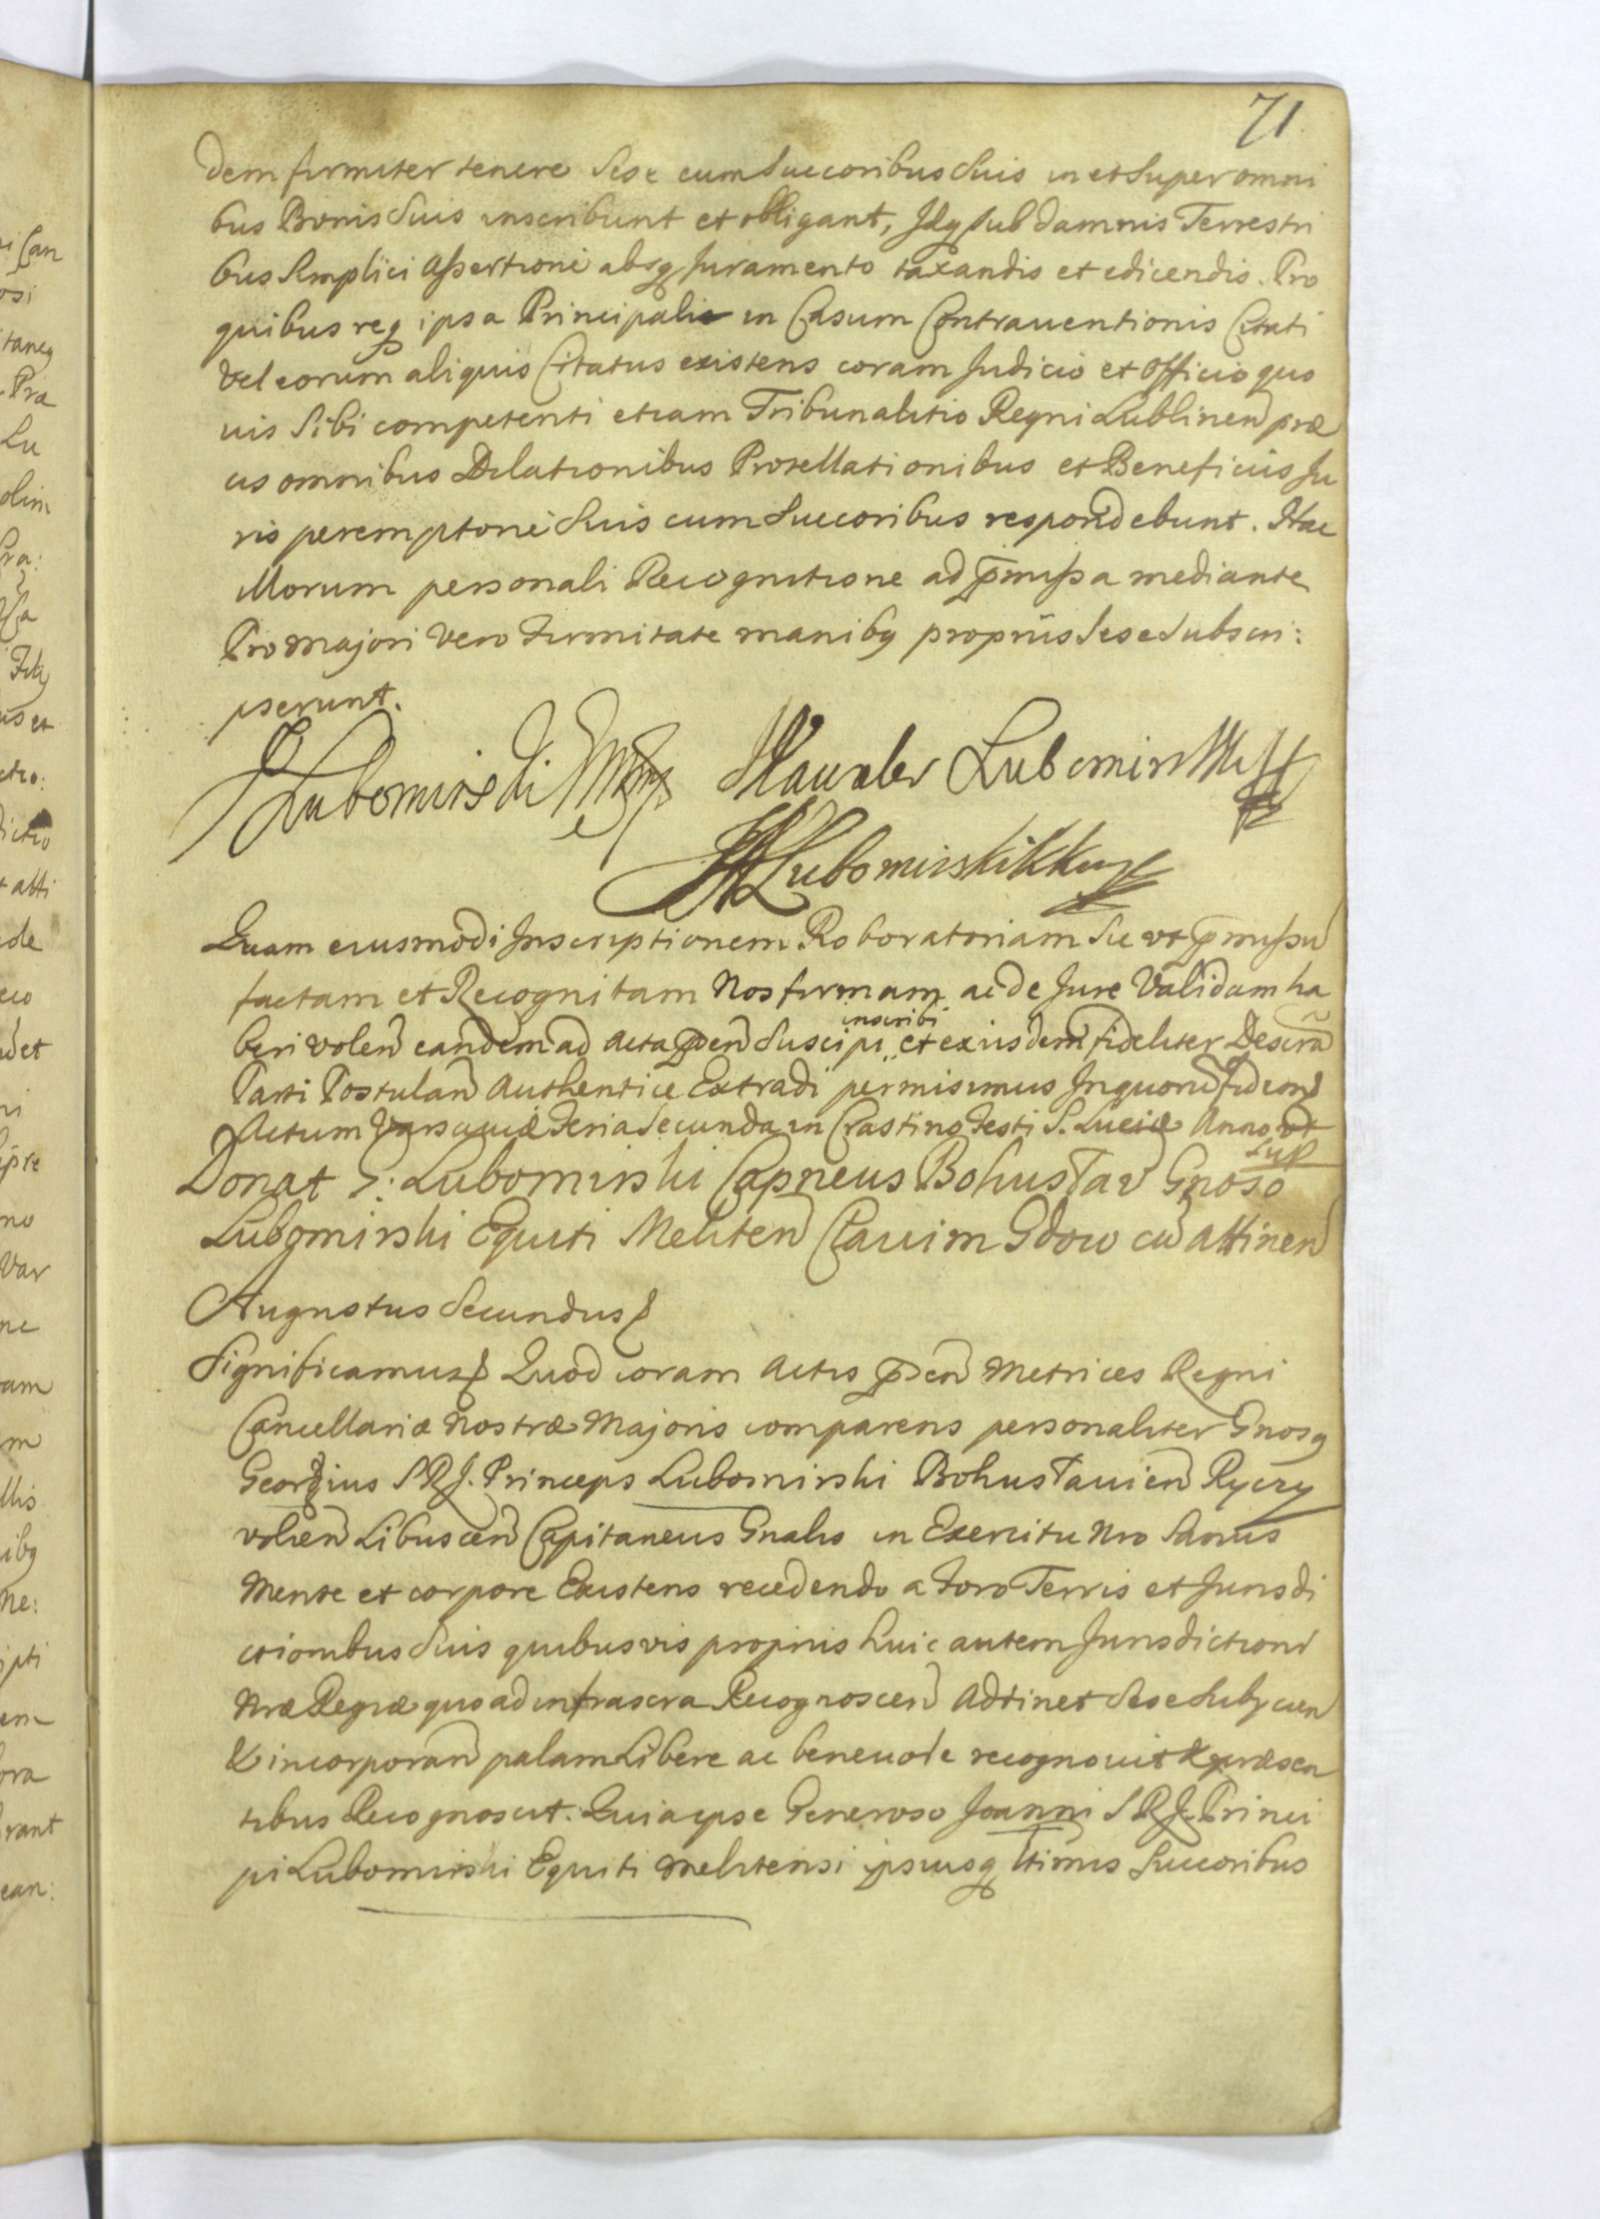 71
dem firmiter tenere Sese cum Succoribus Suis in et Super omni
bus Bonis Suis inscribunt et obligant, Idq Sub damnis Terrestri
bus Simplici Assertione absq Iuramento taxandis et edicendis. Pro
quibus req ipsa Principalis in Casum Contrauentionis Citati
Vel eorum aliquis Citatus existens coram Iudicio et Officio quo
uis Sibi competenti etiam Tribunalitio Regni Lublinen præ
cis omnibus Dilationibus Protellationibus et Beneficiis Iu
ris peremptorie Suis cum Succoribus respondebunt. Hac
Morum personali Recognitione ad pmissa mediante
Pro majori Vero Firmitate manibq proprijs Sese Subscri:
pserunt.
Lubomirski
Xawier Lubomirski
Lubomirski
Quam eiusmodi Inscriptionem Roboratoriam Sic vt pmissu
factam et Recognitam Nos firmam ac de Jure Validam ha
inscribi
beri volen eandem ad Acta pden Suscipi et exiusdem fideliter Descra
Parti Postulan Authentice Extradi permisimus In quoru fidem
Actum Varsaviæ Feria Secunda in Crastino Festi S. Luciæ Anno vt
sup
Donat G: Lubomirski Capneus Bohustav Gnoso
Lubomirski Equiti Meliten Clavim Gdow cu attinen
Augustus Secundus
Significamus Quod coram Actis pden Metrices Regni
Cancellariæ Nostræ Majoris comparens personaliter Gnosq
Georgius S R J. Princeps Lubomirski Bohustavien Ryczy
volien Libuscen Capitaneus Gnalis in Exercitu Nro Sanus
Mente et corpore Existens recedendo a Foro Terris et Jurisdi
ctionibus Suis quibusvis proprijs huic autem Jurisdictioni
Nræ Regiæ quo ad infrascra Recognoscen Adtinet Sese Subijcien
& incorporan palam Libere ac beneuole recognouit & præsen
tibus Recognoscit. Quia ipse Generoso Joanni S R J. Princi
pi Lubomirski Equiti Melitensi ipsiusq ltimis Succoribus